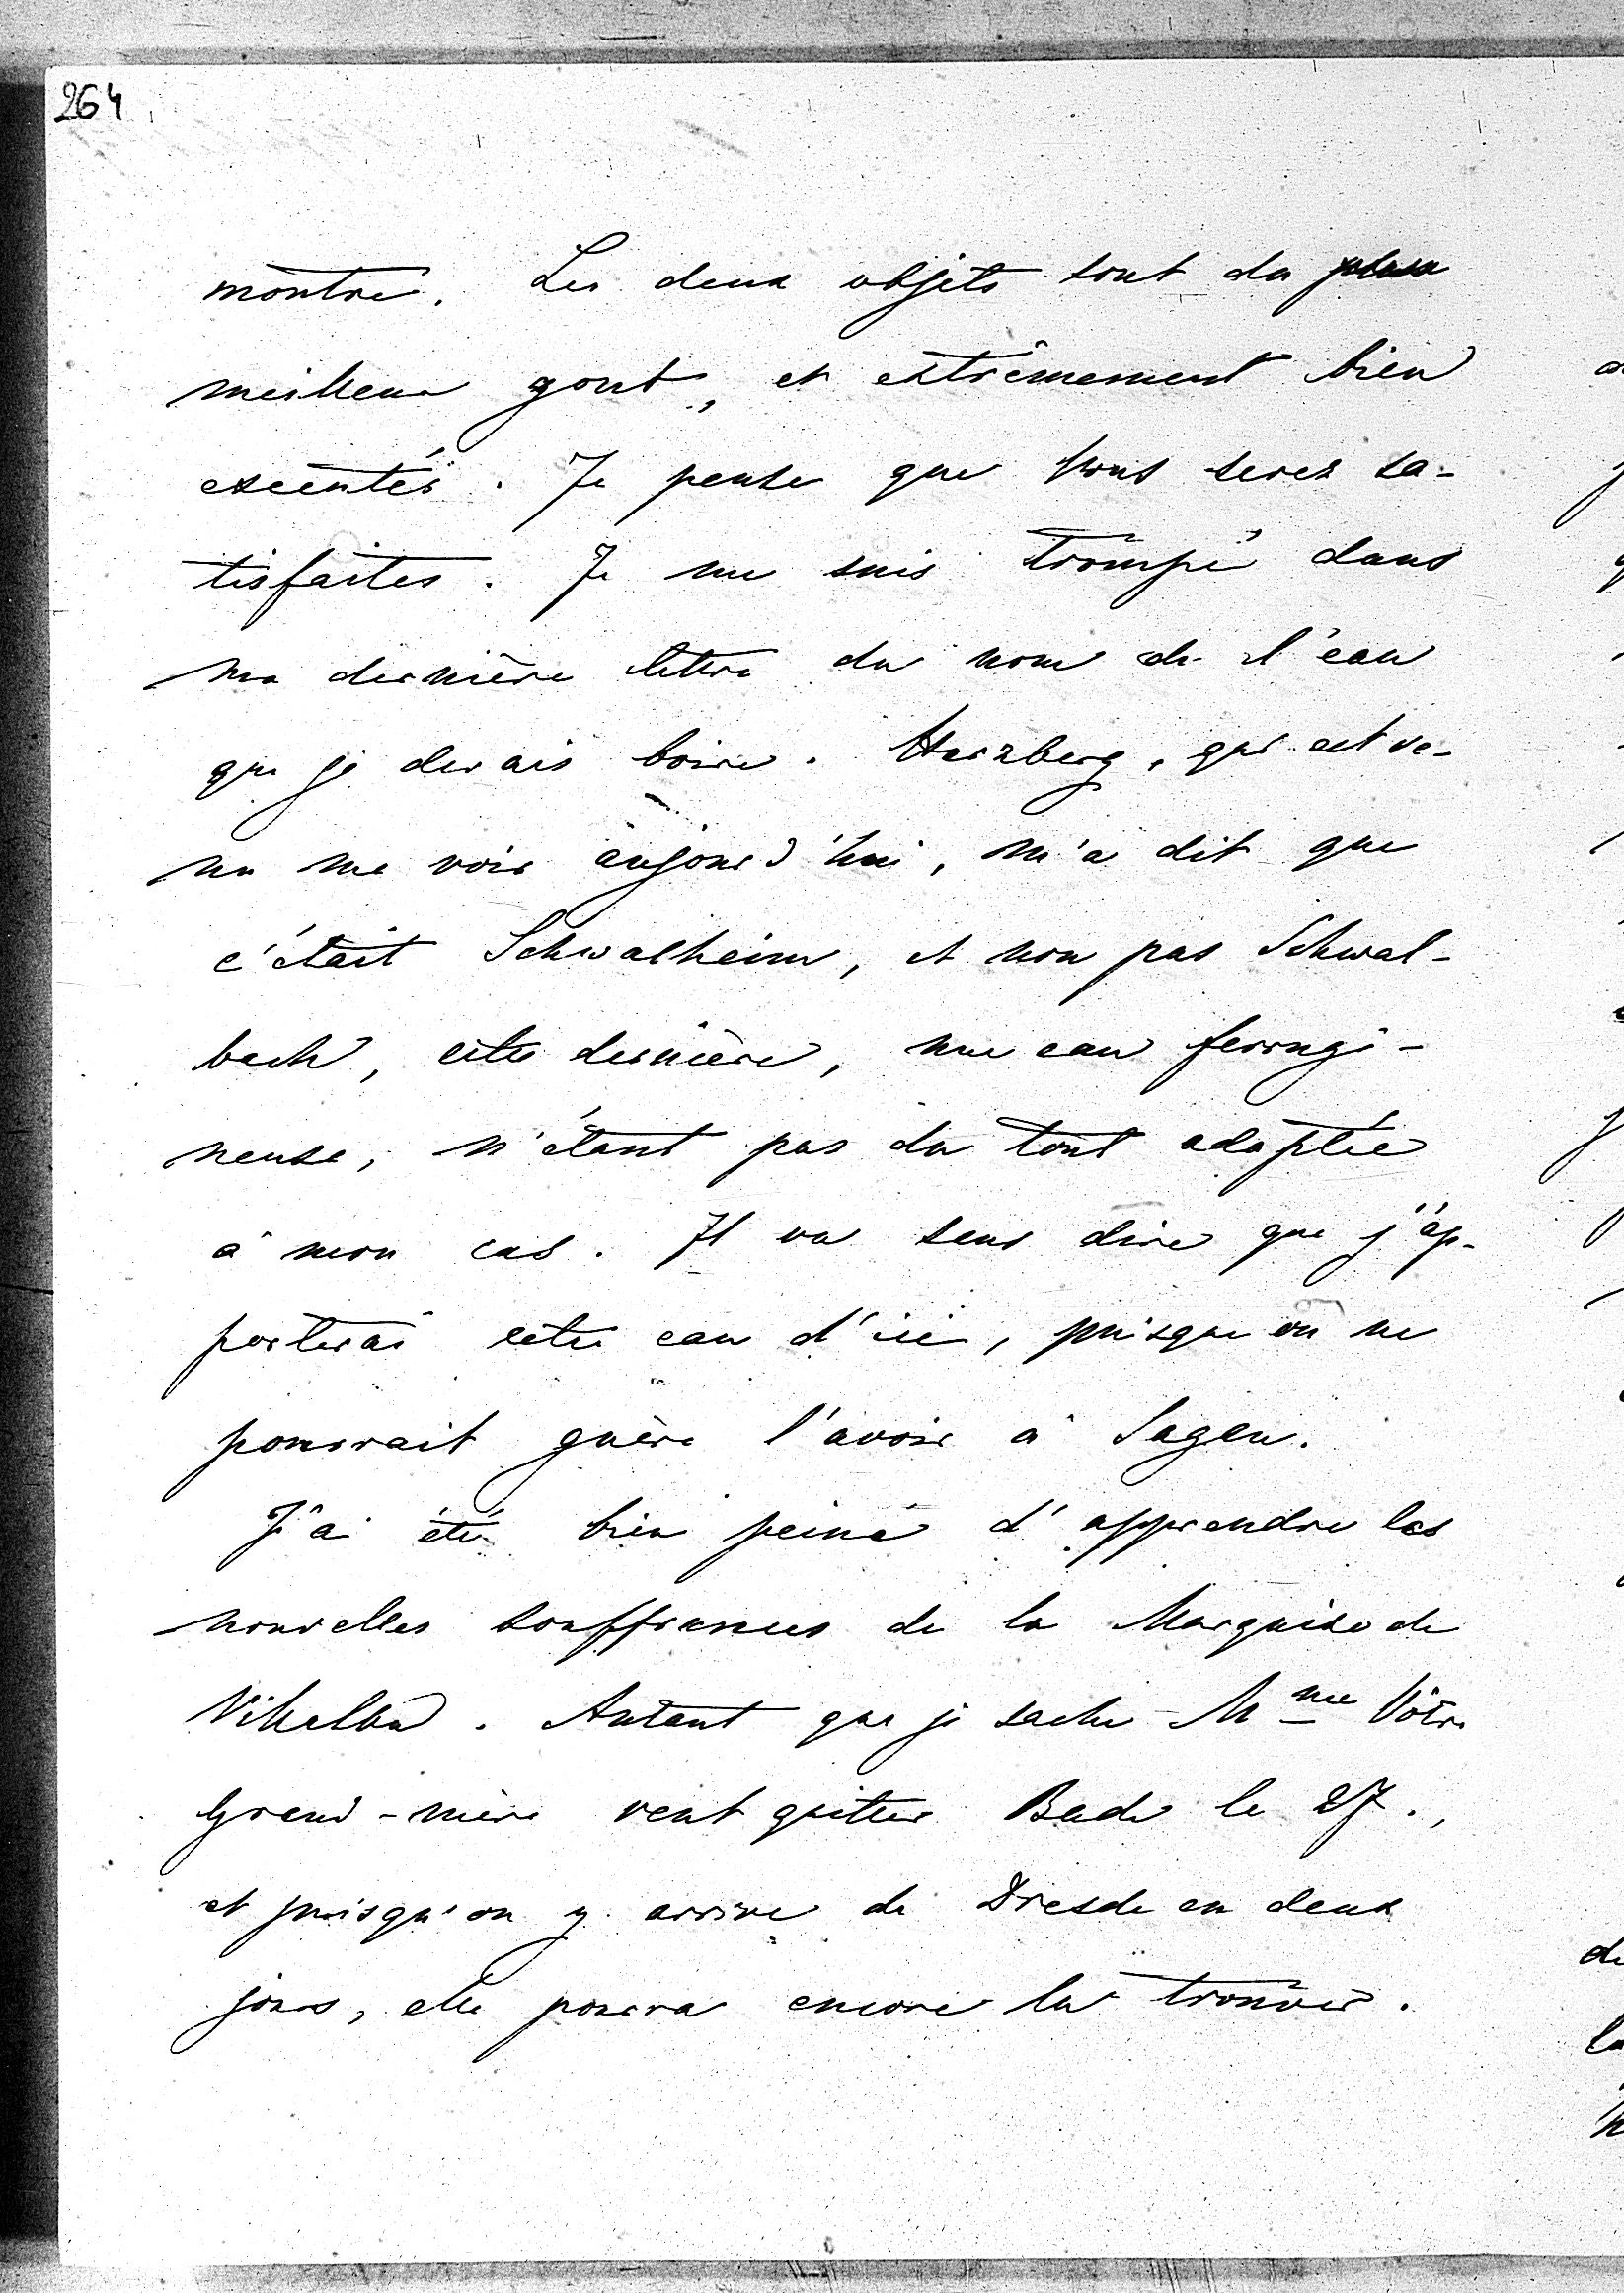 264
montre. Les deux objets sont du
meilleur gout, et extrêmement bien
exécutés. Je pense que Vous serez sa-
tisfaites. Je me suis trompé dans
ma dernière lettre du nom de l'eau
que je devais boire. Herzberg, qui est ve-
nu me voir aujourd'hui, m'a dit que
c'était Schwalheim, et non pas Schwal-
bach, cette dernière, une eau ferrugi-
neuse, n'étant pas du tout adaptée
à mon cas. Il va sans dire que j'ap-
porterai cette eau d'ici, puisque on ne
pourrait guère l'avoir à Sagan.
J'ai été bien peiné d'apprendre les
nouvelles souffrances de la Marquise de
Autant que je sache Mme Votre
Grand-mère veut quitter Bade le 27.,
et puisqu'on y arrive de Dresde en deux
jours, elle pourra encore la trouver.